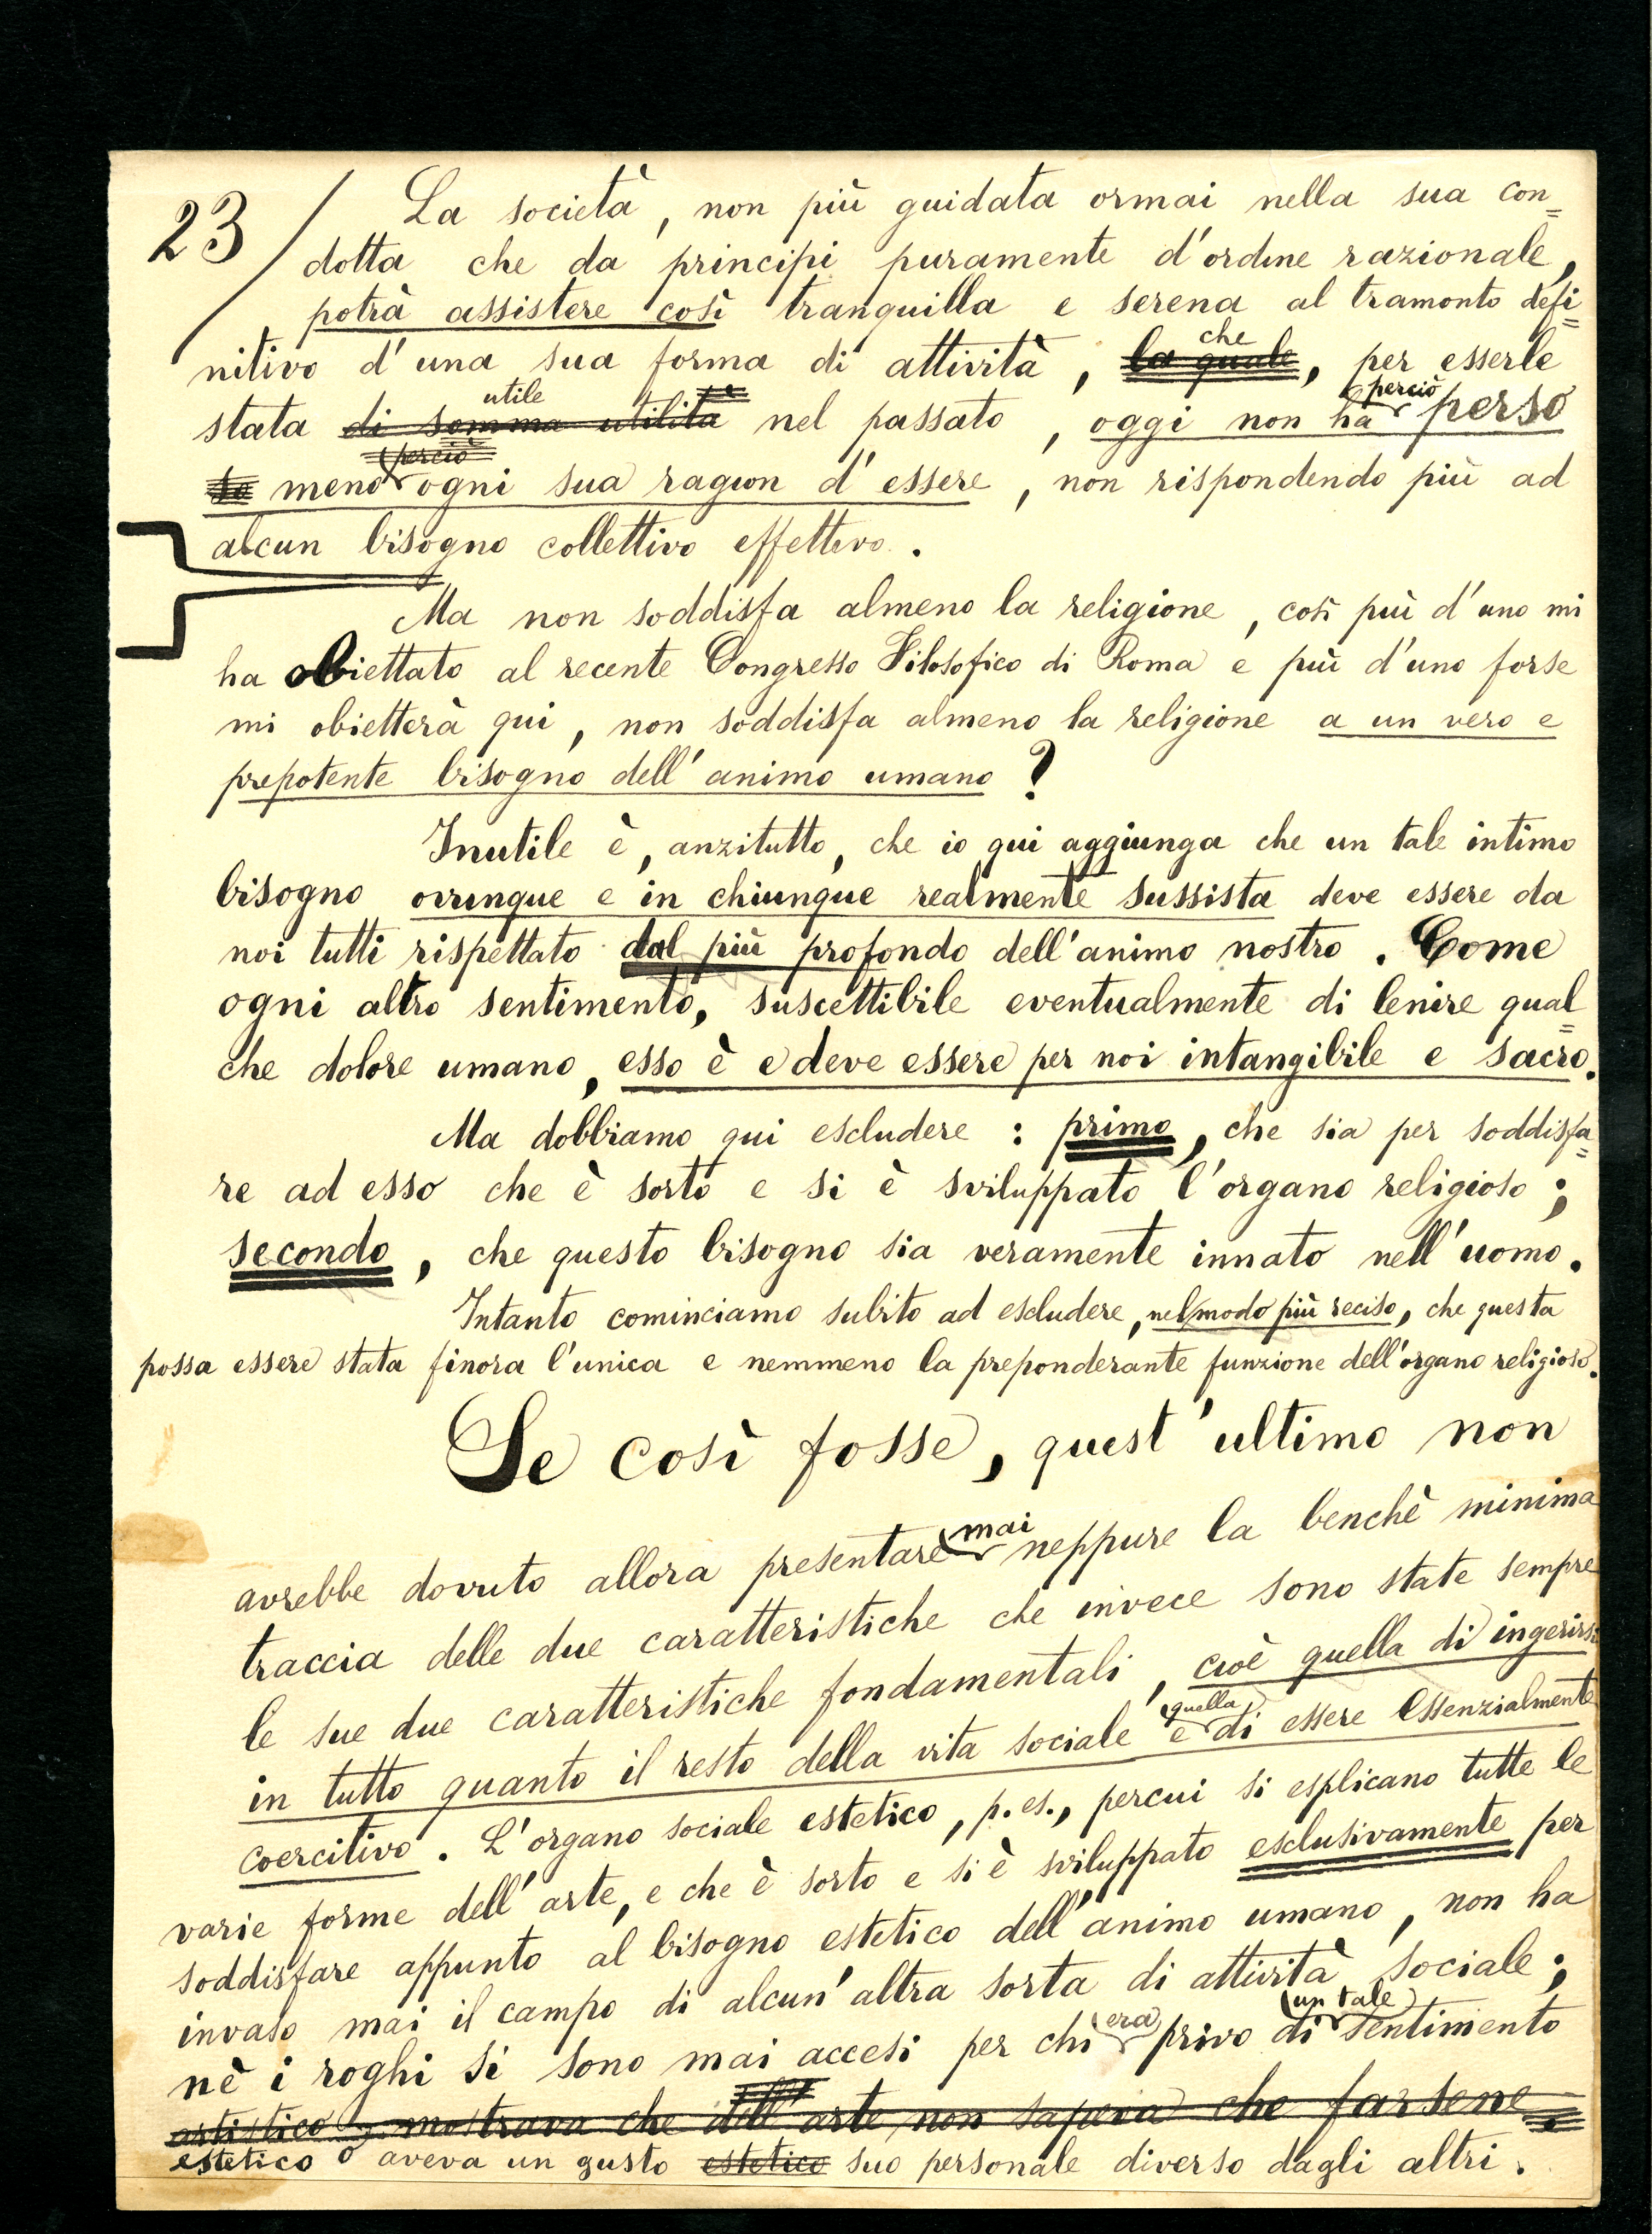 23/ La società, non più guidata ormai nella sua con=
dotta che da principi puramente d'ordine razionale,
potrà assistere così tranquilla e serena al tramonto defi=
che
nitivo d'una sua forma di attività, la quale, per esserle
utile perciò
stata di somma utilità nel passato, oggi non ha perso
perciò
meno ogni sua ragion d'essere, non rispondendo più ad
alcun bisogno collettivo effettivo.
Ma non soddisfa almeno la religione, così più d'uno mi
ha obiettato al recente Congresso Filosofico di Roma e più d'uno forse
mi obietterà qui, non soddisfa almeno la religione a un vero e
prepotente bisogno dell'animo umano?
Inutile è, anzitutto, che io qui aggiunga che un tale intimo
bisogno ovunque e in chiunque realmente sussista deve essere da
noi tutti rispettato dal più profondo dell'animo nostro. Come
ogni altro sentimento, suscettibile eventualmente di lenire qual=
che dolore umano, esso è e deve essere per noi intangibile e sacro.
Ma dobbiamo qui escludere: primo, che sia per soddisfa=
re ad esso che è sorto e si è sviluppato l'organo religioso;
secondo, che questo bisogno sia veramente innato nell'uomo.
Intanto cominciamo subito ad escludere, nel modo più reciso, che questa
possa essere stata finora l'unica e nemmeno la preponderante funzione dell'organo religioso.
Se così fosse, quest'ultimo non
mai
avrebbe dovuto allora presentare neppure la benchè minima
traccia delle due caratteristiche che invece sono state sempre
le sue due caratteristiche fondamentali, cioè quella di ingerirsi
quella
in tutto quanto il resto della vita sociale e di essere essenzialmente
coercitivo. L'organo sociale estetico, p. es., percui si esplicano tutte le
varie forme dell'arte, e che è sorto e si è sviluppato esclusivamente per
soddisfare appunto al bisogno estetico dell'animo umano, non ha
invaso mai il campo di alcun'altra sorta di attività sociale;
era un tale
nè i roghi si sono mai accesi per chi privo di sentimento
artistico mostrava che dell'arte non sapeva che farsene,
estetico o aveva un gusto estetico suo personale diverso dagli altri.